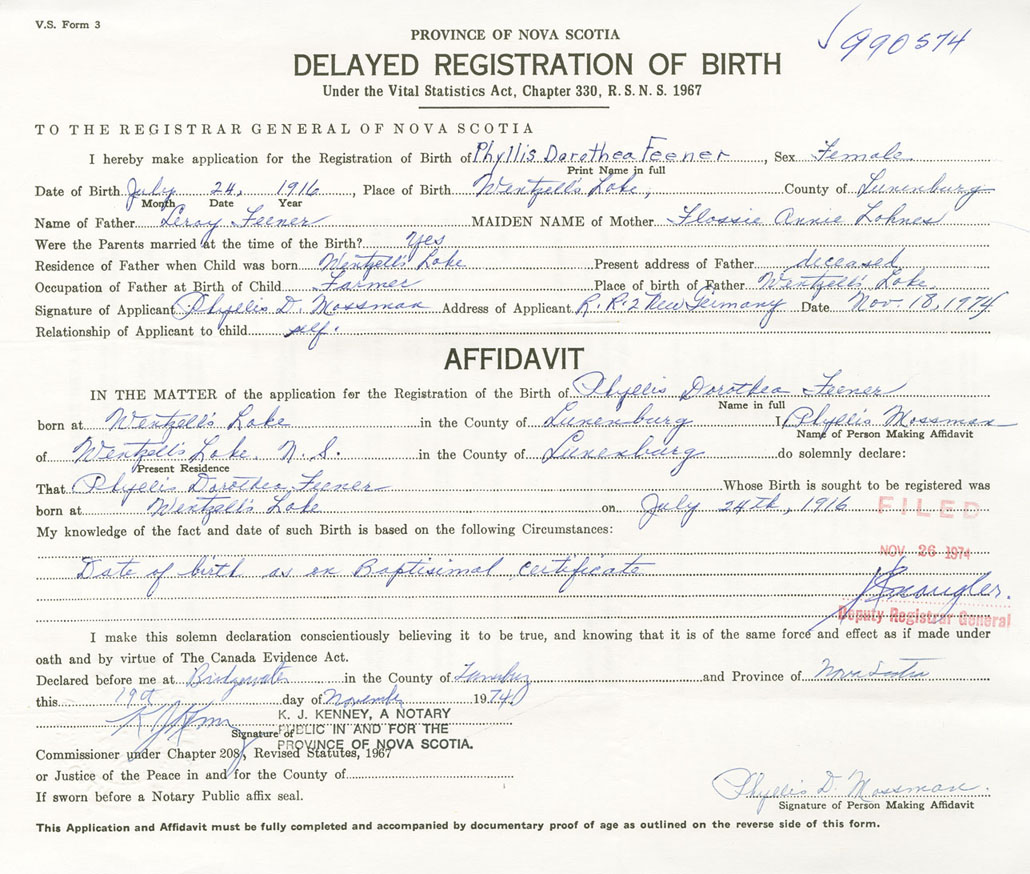 V.S. Form 3
990574
PROVINCE OF NOVA SCOTIA
DELAYED REGISTRATION OF BIRTH
Under the Vital Statistics Act, Chapter 330, R.S.N.S. 1967
TO THE REGISTRAR GENERAL OF NOVA SCOTIA
I hereby make application for the Registration of Birth of Phyllis Dorothea Feener, Sex Female
Print Name in full
Date of Birth July 24, 1916, Place of Birth Wentzell's Lake, County of Lunenburg
Month Date Year
Name of Father Leroy Feener MAIDEN NAME of Mother Flossie Annie Lohnes
Were the Parents married at the time of the Birth? Yes
Residence of Father when Child was born Wentzell's Lake Present address of Father deceased
Occupation of Father at Birth of Child Farmer Place of birth of Father Wentzell's Lake
Signature of Applicant Phyllis D. Mossman Address of Applicant R.R.2 New Germany Date Nov. 18, 1974
Relationship of Applicant to child self.
AFFIDAVIT
IN THE MATTER of the application for the Registration of the Birth of Phyllis Dorothea Feener
Name in full
born at Wentzell's Lake in the County of Lunenburg I Phyllis Mossman
Name of Person Making Affidavit
of Wentzell's Lake, N.S. in the County of Lunenburg do solemnly declare:
Present Residence
That Phyllis Dorothea Feener Whose Birth is sought to be registered was
born at Wentzell's Lake on July 24th, 1916
FILED
My knowledge of the fact and date of such Birth is based on the following Circumstances:
NOV 26 1974
Date of birth as on Baptisimal certificate
Deputy Registrar General
I make this solemn declaration conscientiously believing it to be true, and knowing that it is of the same force and effect as if made under
oath and by virtue of The Canada Evidence Act.
Declared before me at Bridgewater in the County of Lunenburg and Province of Nova Scotia
this 19th day of November 1974
K. J. KENNEY, A NOTARY
Signature of PUBLIC IN AND FOR THE
PROVINCE OF NOVA SCOTIA.
Commissioner under Chapter 208, Revised Statutes, 1967
or Justice of the Peace in and for the County of
If sworn before a Notary Public affix seal.
Phyllis D. Mossman
Signature of Person Making Affidavit
This Application and Affidavit must be fully completed and accompanied by documentary proof of age as outlined on the reverse side of this form.